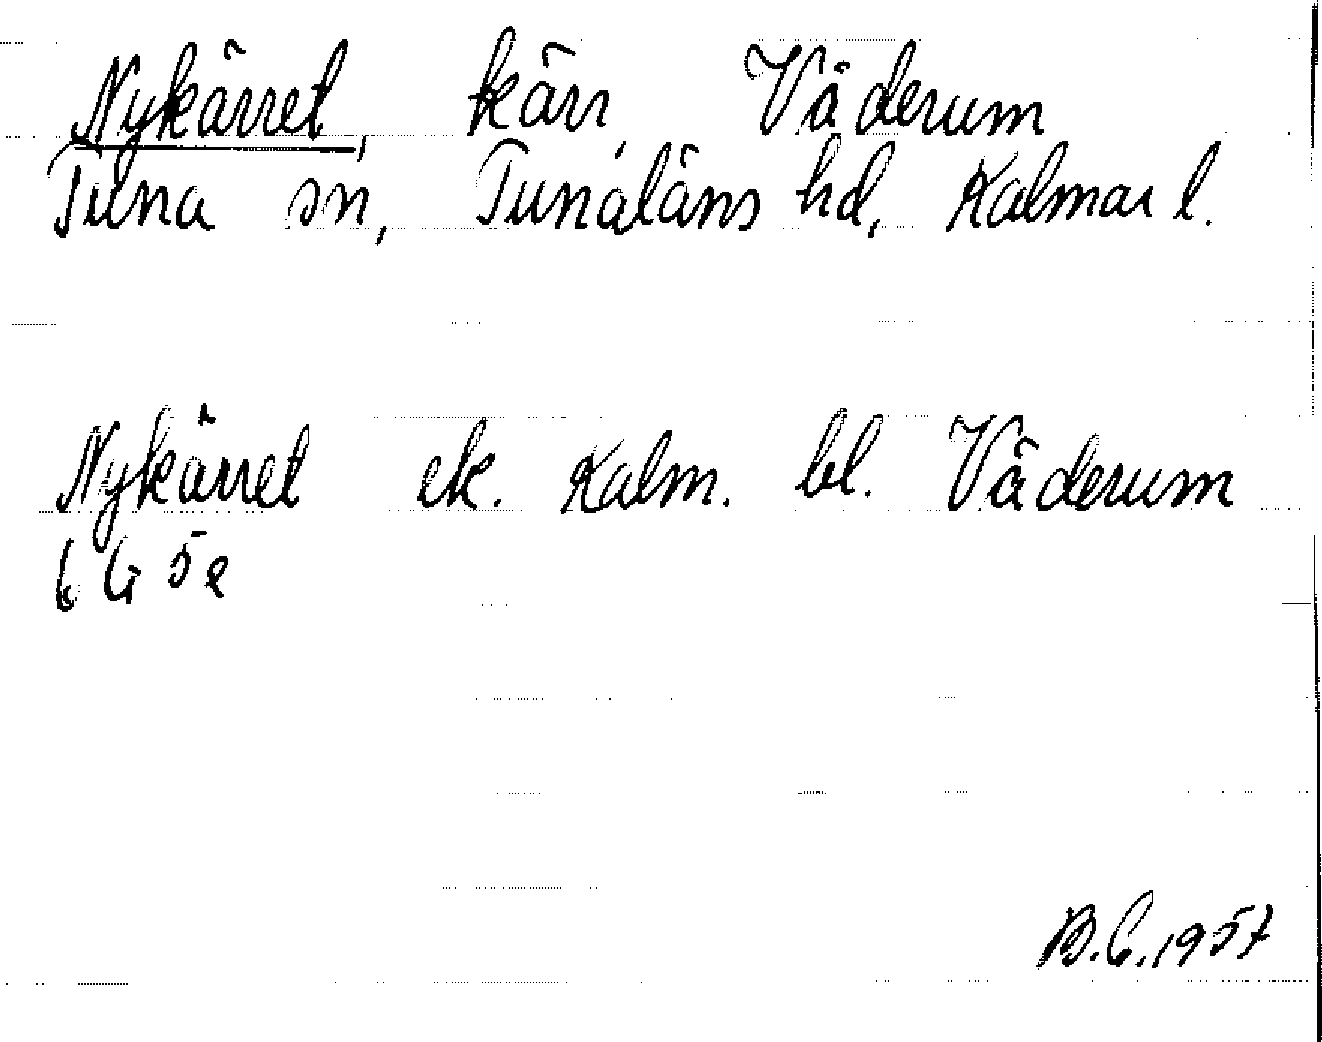 Nykärret, kärr, Väderum
Tuna sn, Tunaläns hd, Kalmar l.
Nykärret ek. Kalm. bl. Väderum
6 G 5 e
B.C. 1957